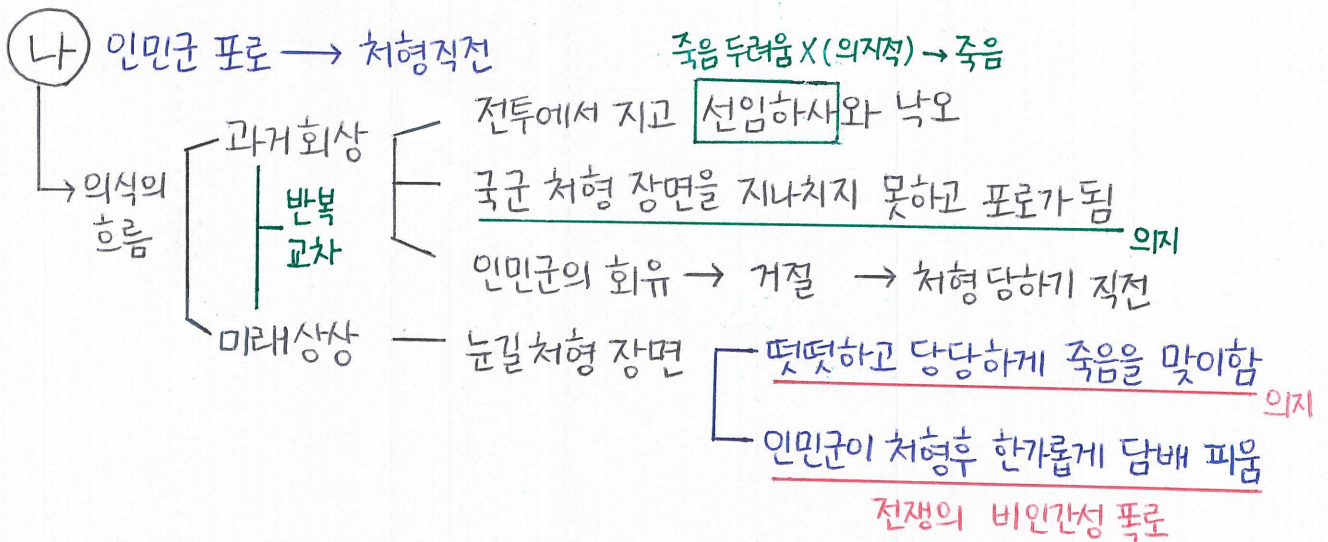 나 인민군 포로 → 처형직전
죽음 두려움 X (의지적) → 죽음
과거회상
전투에서 지고 선임하사와 낙오
→ 의식의
흐름
반복
교차
국군 처형 장면을 지나치지 못하고 포로가 됨
의지
인민군의 회유 → 거절 → 처형당하기 직전
미래상상 — 눈길처형 장면
떳떳하고 당당하게 죽음을 맞이함
의지
인민군이 처형후 한가롭게 담배 피움
전쟁의 비인간성 폭로